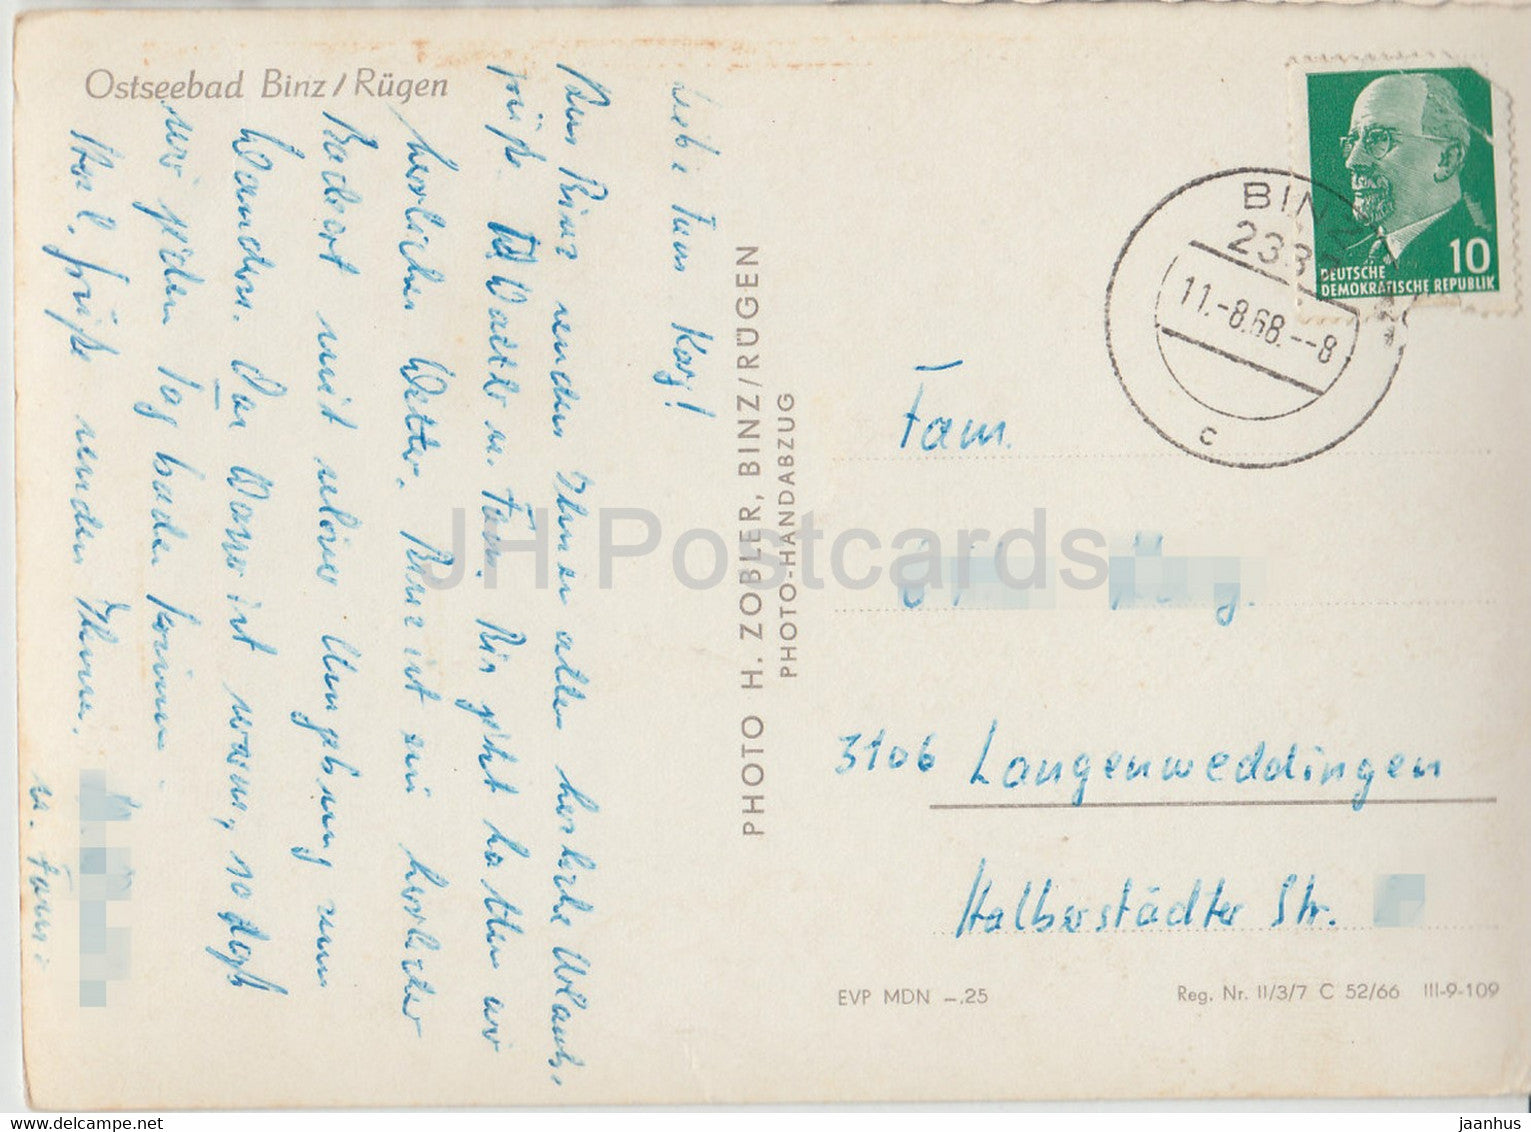 Ostseebad Binz/Rügen
Liebe Fam. Karg!
Aus Binz senden Ihnen allen herzliche Urlaubs-
grüße W. Walter u. Fam. Bis jetzt hatten wir
herrliches Wetter. Binz ist ein herrlicher
Badeort mit schöner Umgebung zum
Wandern. Das Wasser ist warm, so daß
wir jeden Tag baden können.
Herzl. Grüße senden Ihnen
u. Familie
PHOTO H. ZOBLER, BINZ/RÜGEN
PHOTO-HANDABZUG
BINZ
233
11.-8.68.--8
c
10
DEUTSCHE
DEMOKRATISCHE REPUBLIK
Fam.
3106 Langenweddingen
Halberstädter Str.
EVP MDN –.25
Reg. Nr. II/3/7 C 52/66 III-9-109
JH Postcards
www.hippostcard.com
jaanhus